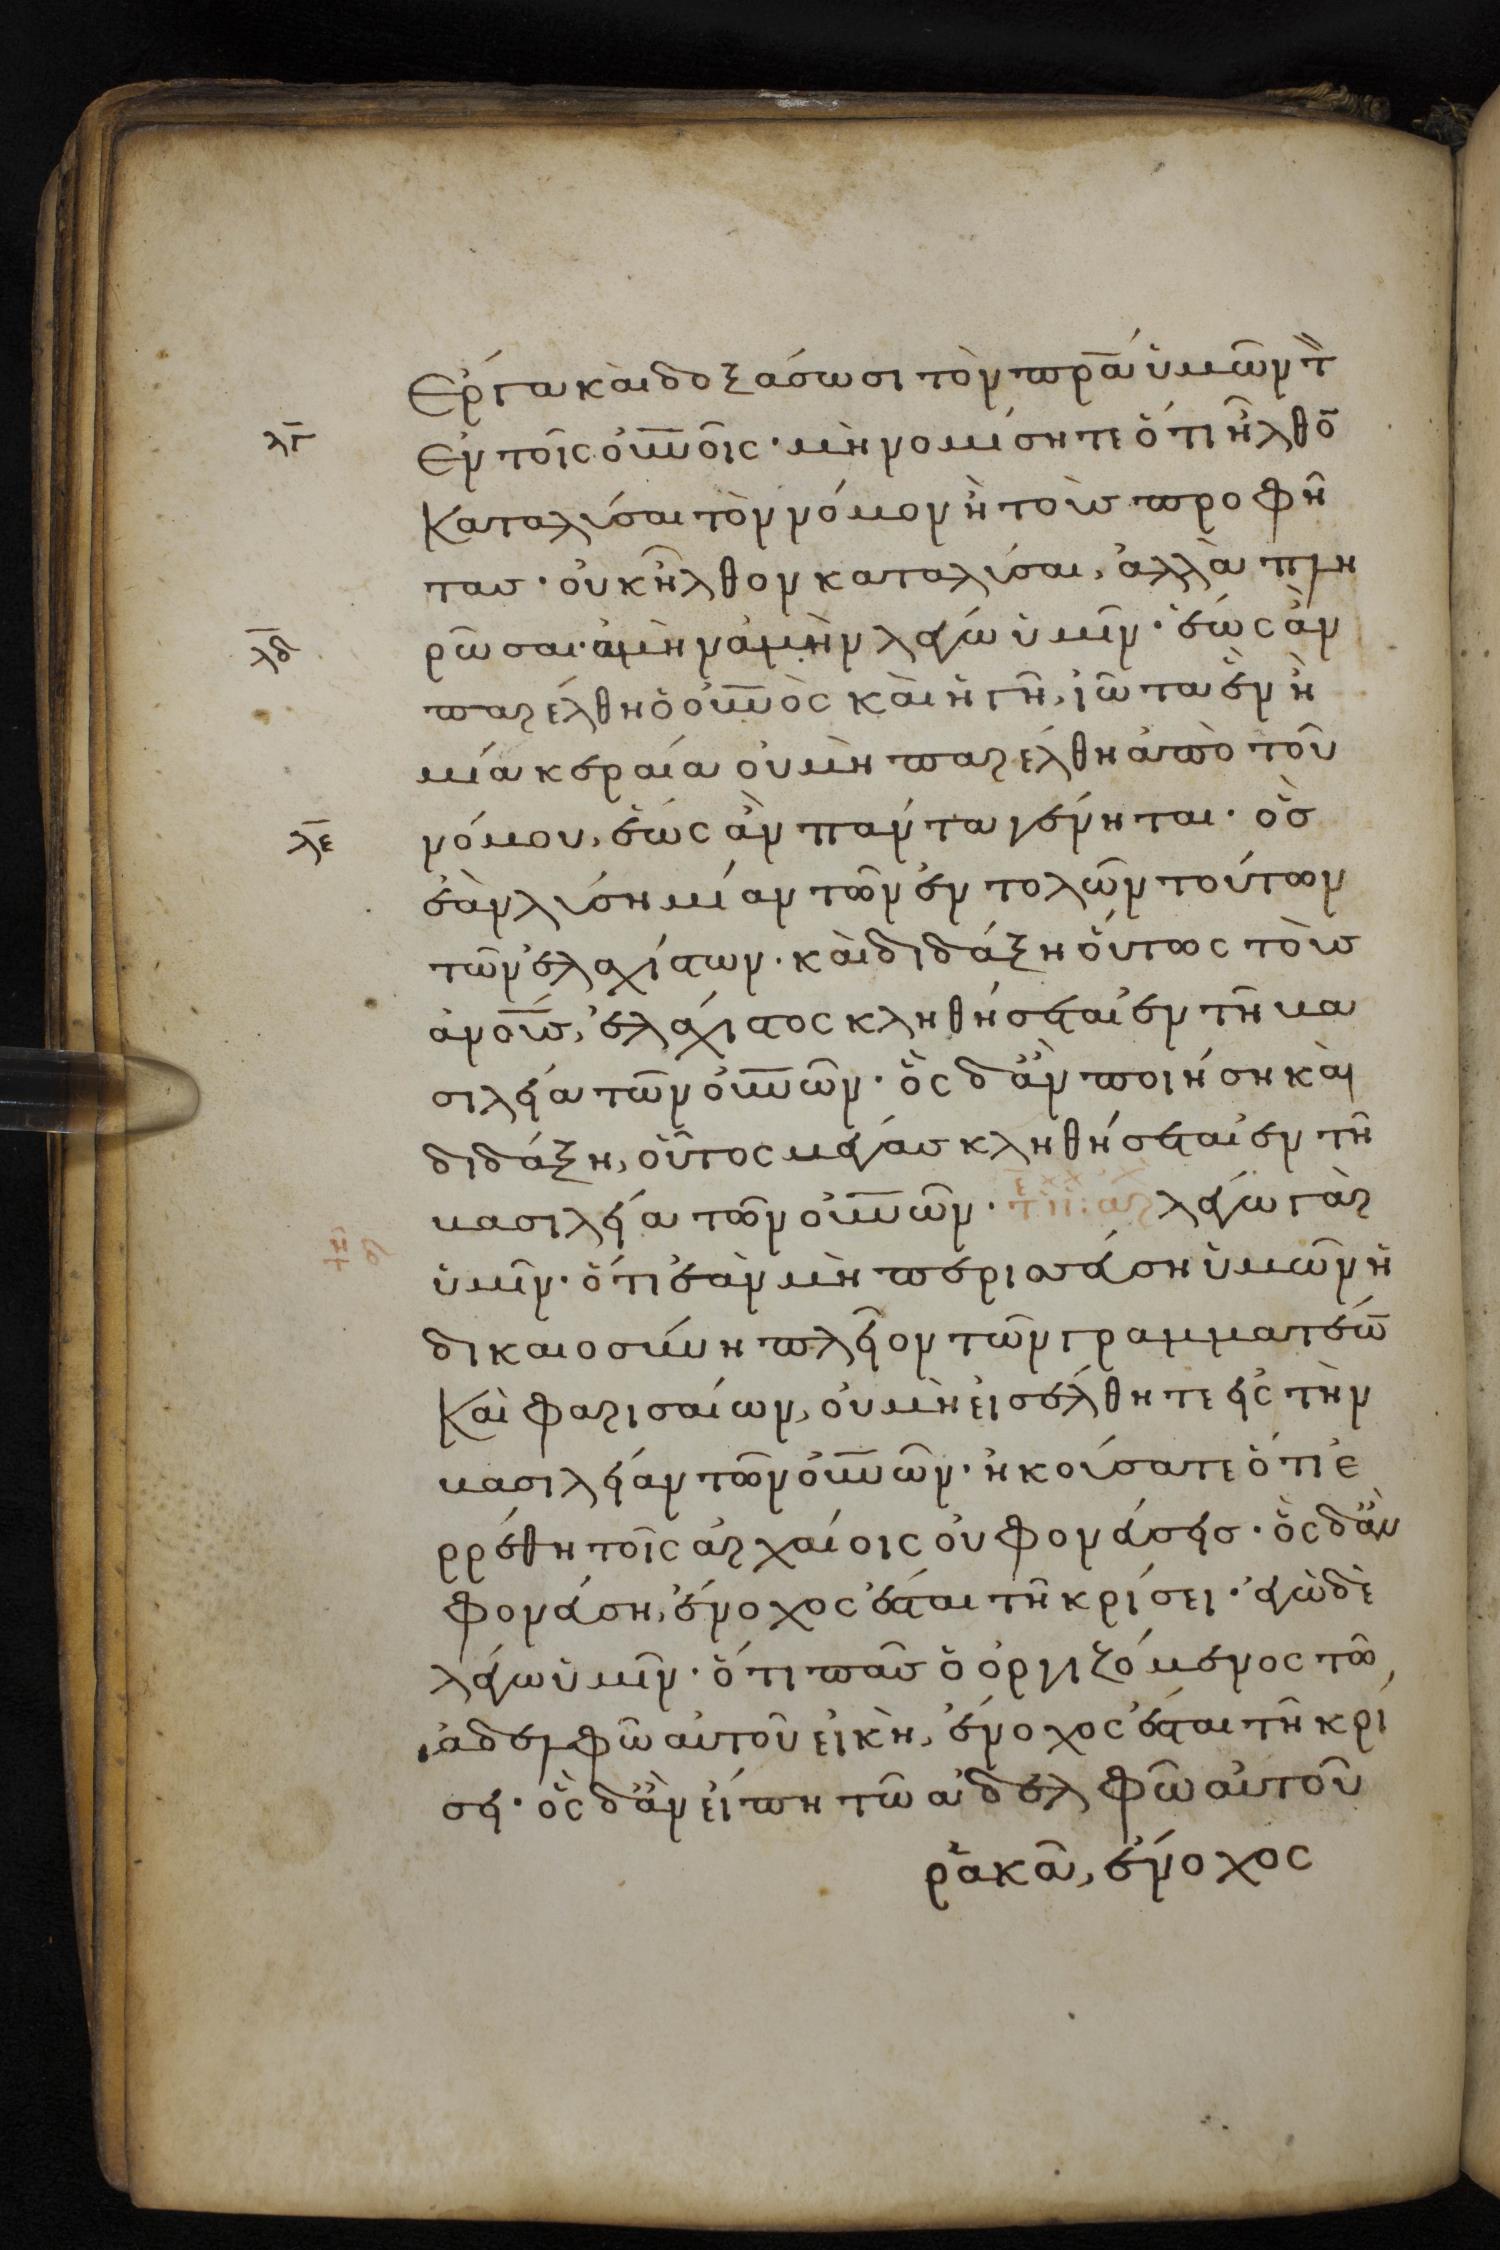 ἔργα καὶ δοξάσωσι τὸν πρ̅α ὑμῶν τ̀
λγ̅ ἐν τοῖς οὐ̅νοῖς· μὴ νομίσητε ὅτι ἦλθο̅
καταλύσαι τὸν νόμον ἢ τοὺς προφή
τας· οὐκ ἦλθον καταλύσαι, ἀλλὰ πλη
λδ̅ ρῶσαι· ἀμὴν ἀμὴν λέγω ὑμῖν· ἕως ἂν
παρέλθη ὁ οὐ̅νὸς καὶ ἡ γῆ, ἰῶτα ἓν ἢ
μία κεραία οὐ μὴ παρέλθη ἀπὸ τοῦ
λε̅ νόμου, ἕως ἂν πάντα γένηται· ὃς
ἐὰν λύση μίαν τῶν ἐντολῶν τούτων
τῶν ἐλαχίστων· καὶ διδάξη οὕτως τοὺς
ἀν̅ο̅υς, ἐλάχιστος κληθήσεται ἐν τῆ βα
σιλεία τῶν οὐ̅νῶν· ὃς δ' ἂν ποιήση καὶ
διδάξη, οὗτος μέγας κληθήσεται ἐν τῆ
βασιλεία τῶν οὐ̅νῶν· λέγω γὰρ
ὑμῖν· ὅτι ἐὰν μὴ περισσεύση ὑμῶν ἡ
δικαιοσύνη πλεῖον τῶν γραμματέω̅
καὶ φαρισαίων, οὐ μὴ εἰσέλθητε εἰς τὴν
βασιλείαν τῶν οὐ̅νῶν· ἠκούσατε ὅτι ἐ
ρρέθη τοῖς ἀρχαίοις οὐ φονεύσεις· ὃς δ' ἂν
φονεύση, ἔνοχος ἔσται τῆ κρίσει· ἐγὼ δὲ
λέγω ὑμῖν· ὅτι πᾶς ὁ ὀργιζόμενος τῶ
ἀδελφῶ αὐτοῦ εἰκὴ, ἔνοχος ἔσται τῆ κρί
σει· ὃς δ' ἂν εἴπη τῶ ἀδελφῶ αὐτοῦ
ῥακᾶ, ἔνοχος